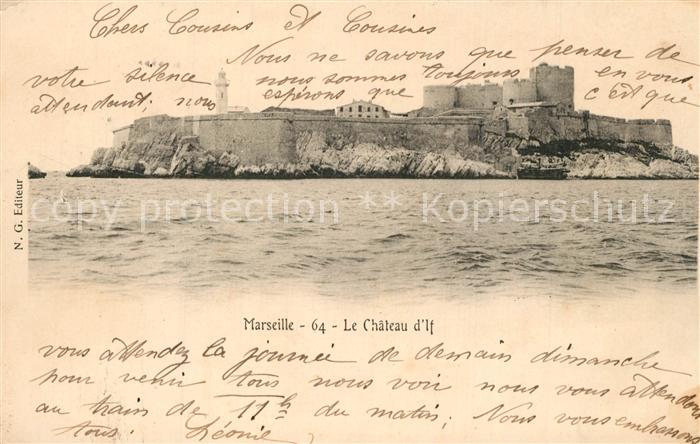 Chers Cousins et Cousines
Nous ne savons que penser de
votre silence nous sommes toujours en vous
attendant; nous espérons que c'est que
N. G. Editeur
copy protection ** Kopierschutz **
Marseille - 64 - Le Château d'If
vous attendez la journée de demain dimanche
pour venir tous nous voir nous vous attendons
au train de 11h du matin; Nous vous embrassons
tous. Léonie